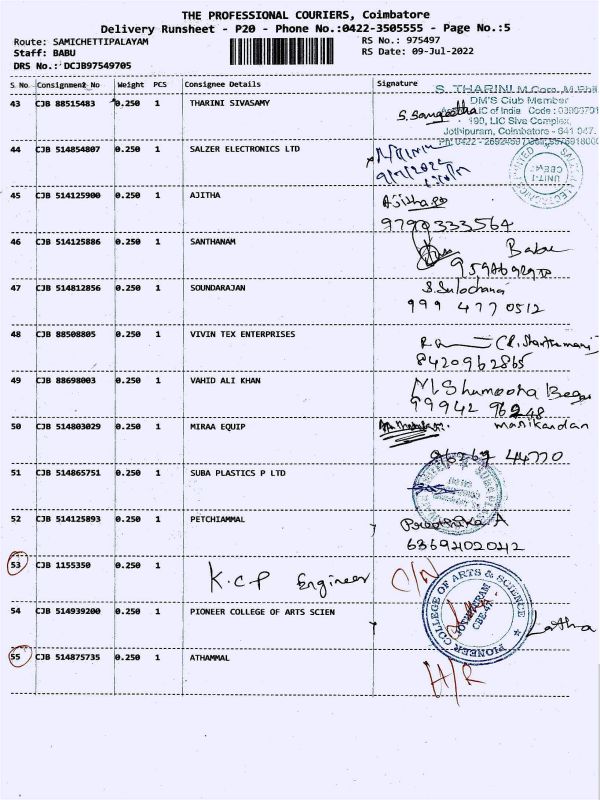 THE PROFESSIONAL COURIERS, Coimbatore
Delivery Runsheet - P20 - Phone No.:0422-3505555 - Page No.:5
Route: SAMICHETTIPALAYAM RS No.: 975497
Staff: BABU RS Date: 09-Jul-2022
DRS No.: DCJB97549705
S No Consignment_No Weight PCS Consignee Details Signature
S. THARINI M.Com.,M.Phil
43 CJB 88515483 0.250 1 THARINI SIVASAMY S. Sangeetha
DM'S Club Member
LIC of India Code:
190, LIC Siva Complex,
Jothipuram, Coimbatore - 641 047.
44 CJB 514854807 0.250 1 SALZER ELECTRONICS LTD
9/7/2022
UNIT-1
45 CJB 514125900 0.250 1 AJITHA Ajitha
9790333564
46 CJB 514125886 0.250 1 SANTHANAM Babu
47 CJB 514812856 0.250 1 SOUNDARAJAN S. Sulochana
999 4770512
48 CJB 88508805 0.250 1 VIVIN TEX ENTERPRISES
8420962865
49 CJB 88698003 0.250 1 VAHID ALI KHAN
99942 96248
50 CJB 514803029 0.250 1 MIRAA EQUIP manikandan
96769 44770
51 CJB 514865751 0.250 1 SUBA PLASTICS P LTD
52 CJB 514125893 0.250 1 PETCHIAMMAL Preethika A
6369402042
53 CJB 1155350 0.250 1 K.C.P Engineer O/N
54 CJB 514939200 0.250 1 PIONEER COLLEGE OF ARTS SCIEN Latha
PIONEER COLLEGE OF ARTS & SCIENCE
JOTHIPURAM
CBE-47
55 CJB 514875735 0.250 1 ATHAMMAL H/R